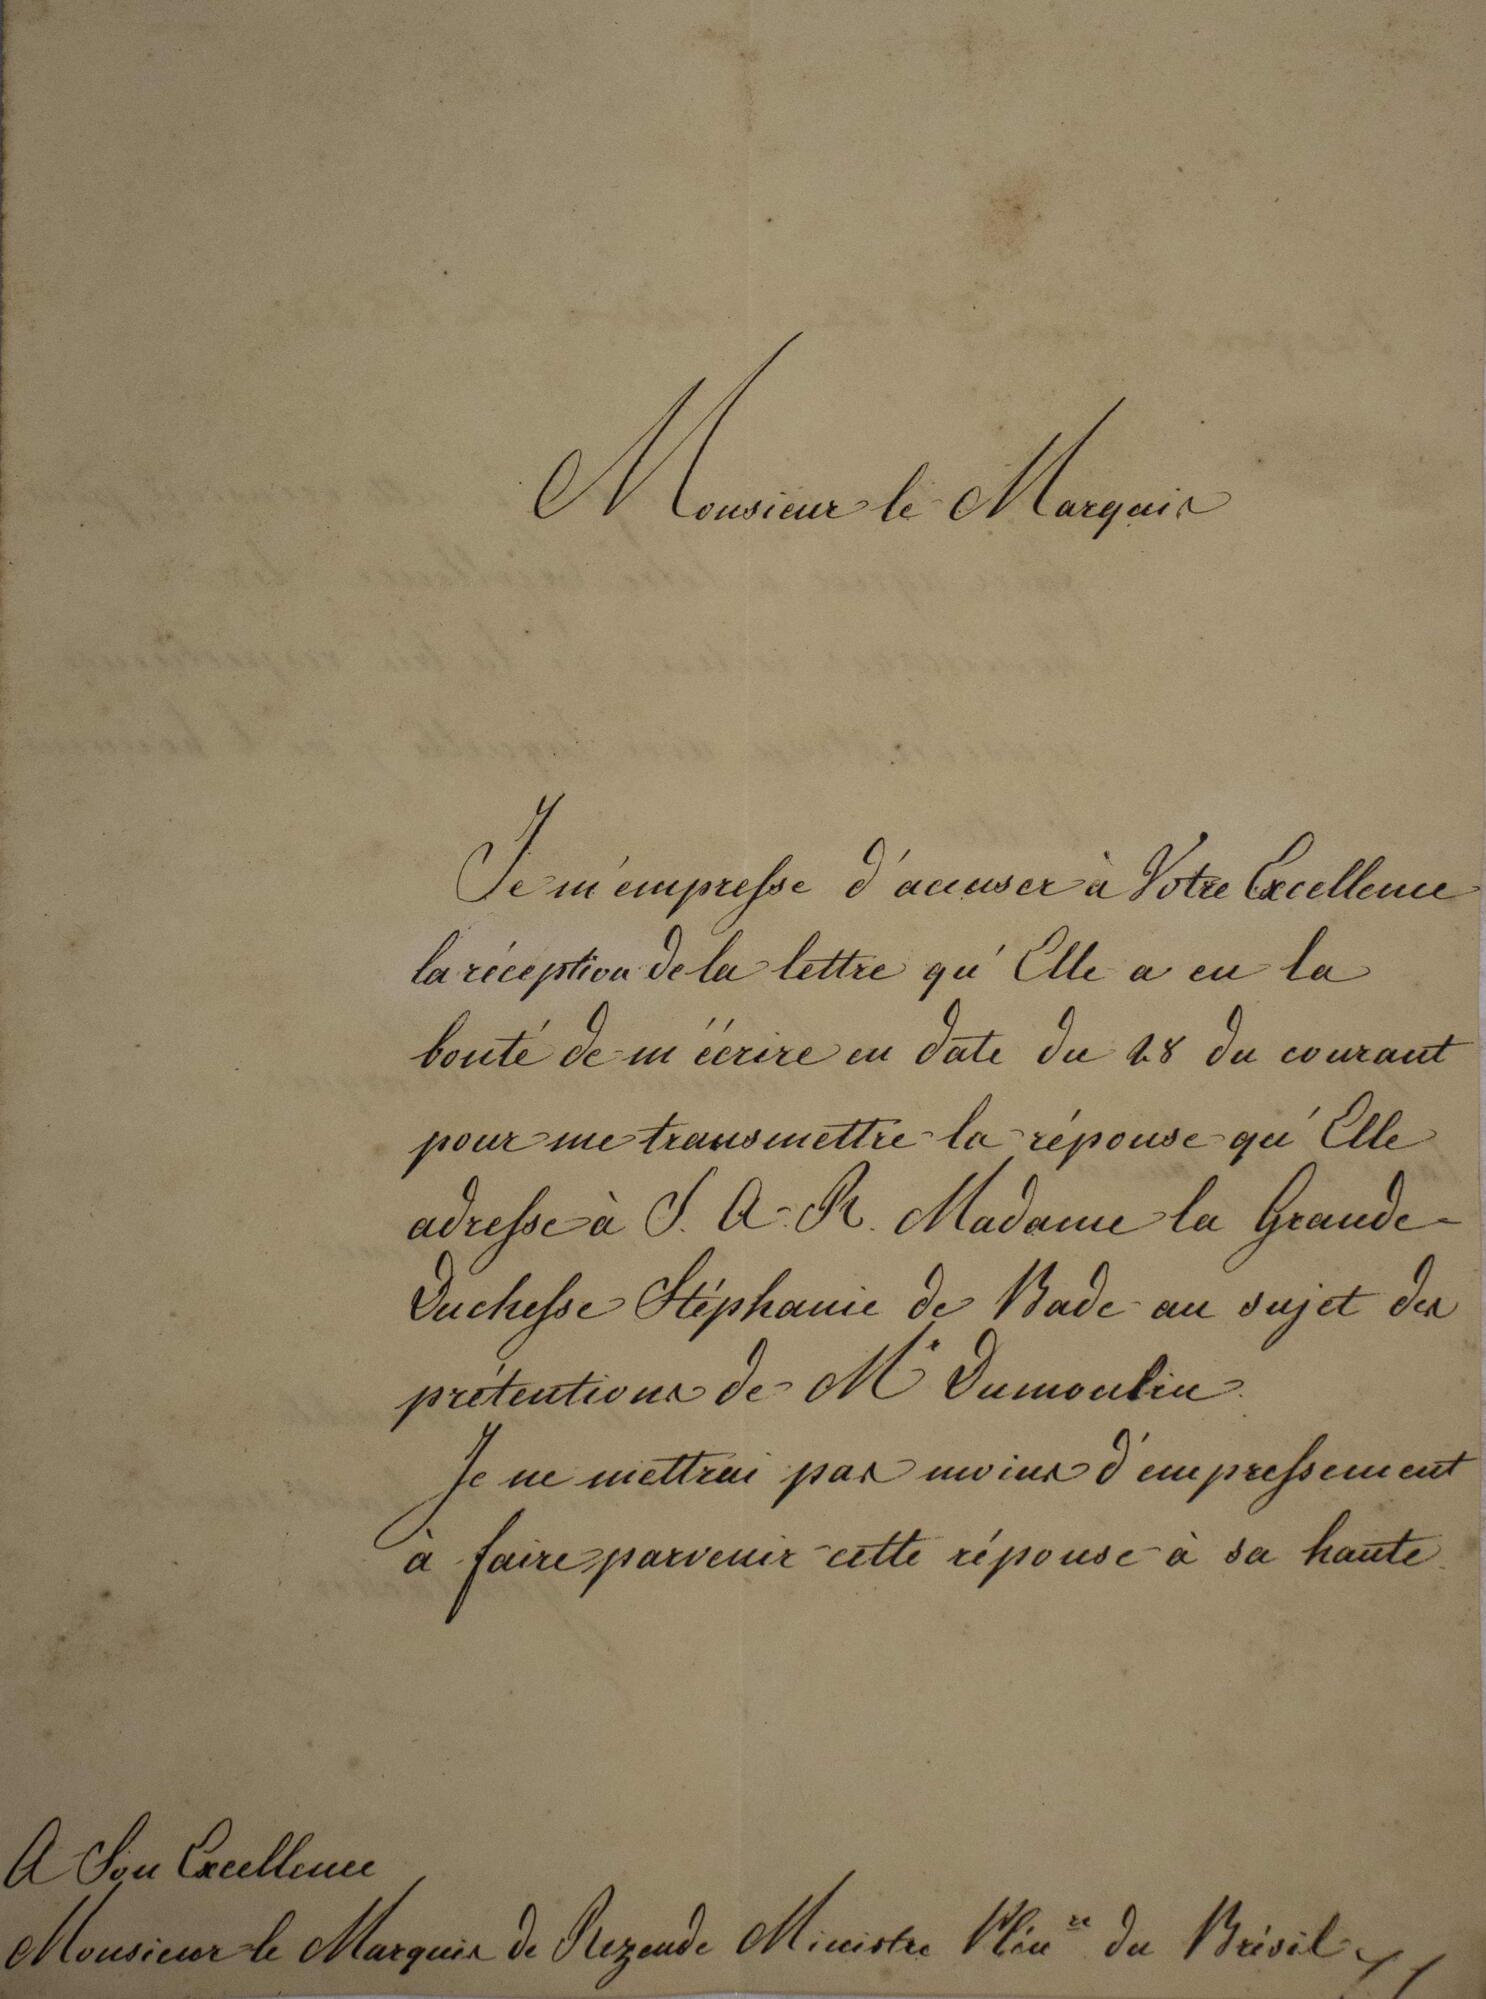 Monsieur le Marquis
Je m'empresse d'accuser à Votre Excellence
la réception de la lettre qu'Elle a eu la
bonté de m'écrire en date du 28 du courant
pour me transmettre la réponse qu'Elle
adresse à S. A. R. Madame la Grande-
Duchesse Stéphanie de Bade au sujet des
prétentions de Mr Dumoulin.
Je ne mettrai pas moins d'empressement
à faire parvenir cette réponse à sa haute
A Son Excellence
Monsieur le Marquis de Rezende Ministre Plénre du Brésil